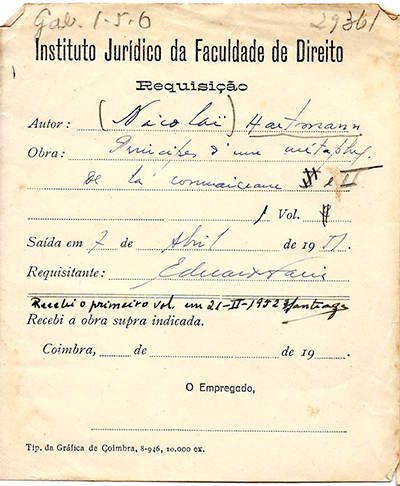 Gab. 1-5-6 29361
Instituto Jurídico da Faculdade de Direito
Requisição
Autor: (Nicolaï) Hartmann
Obra: Principes d'une métaphy.
De la connaissance I e II
1 Vol.
Saída em 7 de Abril de 19
Requisitante: Eduardo
Recebi o primeiro vol em 21-II-1952 Santiago
Recebi a obra supra indicada.
Coimbra, de de 19 .
O Empregado,
Tip. da Gráfica de Coimbra, 8-946, 10.000 ex.